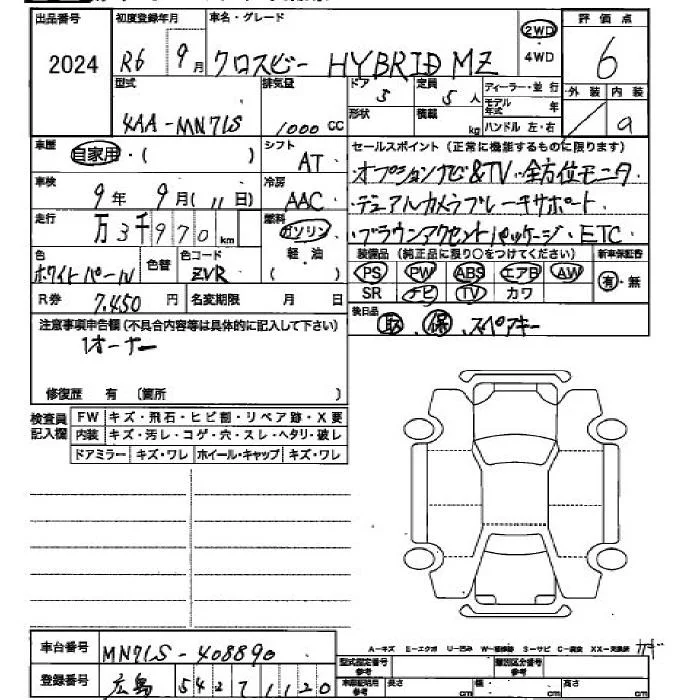 出品番号 2024
初度登録年月 R6 9月
車名・グレード クロスビー HYBRID MZ
2WD・4WD
評価点 6
外装 内装 a
型式 4AA-MN71S
排気量 1000 cc
ドア 5 定員 5 人
形状 積載 kg
ディーラー・並行
モデル年式 年
ハンドル 左・右
車歴 自家用・( )
シフト AT
車検 9年 9月(11日)
冷房 AAC
走行 万3千970km
燃料 ガソリン・軽油 ( )
色 ホワイトパール 色替 色コード ZVR
R券 7,450円 名変期限 月 日
セールスポイント(正常に機能するものに限ります)
オプションナビ&TV・全方位モニタ
デュアルカメラブレーキサポート
ブラウンアクセントパッケージ・ETC
装備品(純正品に限り○をつけてください) 新車保証書
PS PW ABS エアB AW 有・無
SR ナビ TV カワ
後日品 取 . 保 . スペアキー
注意事項申告欄(不具合内容等は具体的に記入して下さい)
1オーナー
修復歴 有 (箇所 )
検査員記入欄
FW キズ・飛石・ヒビ割・リペア跡・X要
内装 キズ・汚レ・コゲ・穴・スレ・ヘタリ・破レ
ドアミラー キズ・ワレ ホイール・キャップ キズ・ワレ
A-キズ E-エクボ U-凹み S-サビ C-腐食 XX-交換済
車台番号 MN71S-408890
登録番号 広島 542 1120
型式指定番号 参考 類別区分番号 参考
参考 長さ cm 幅・ cm 高さ cm